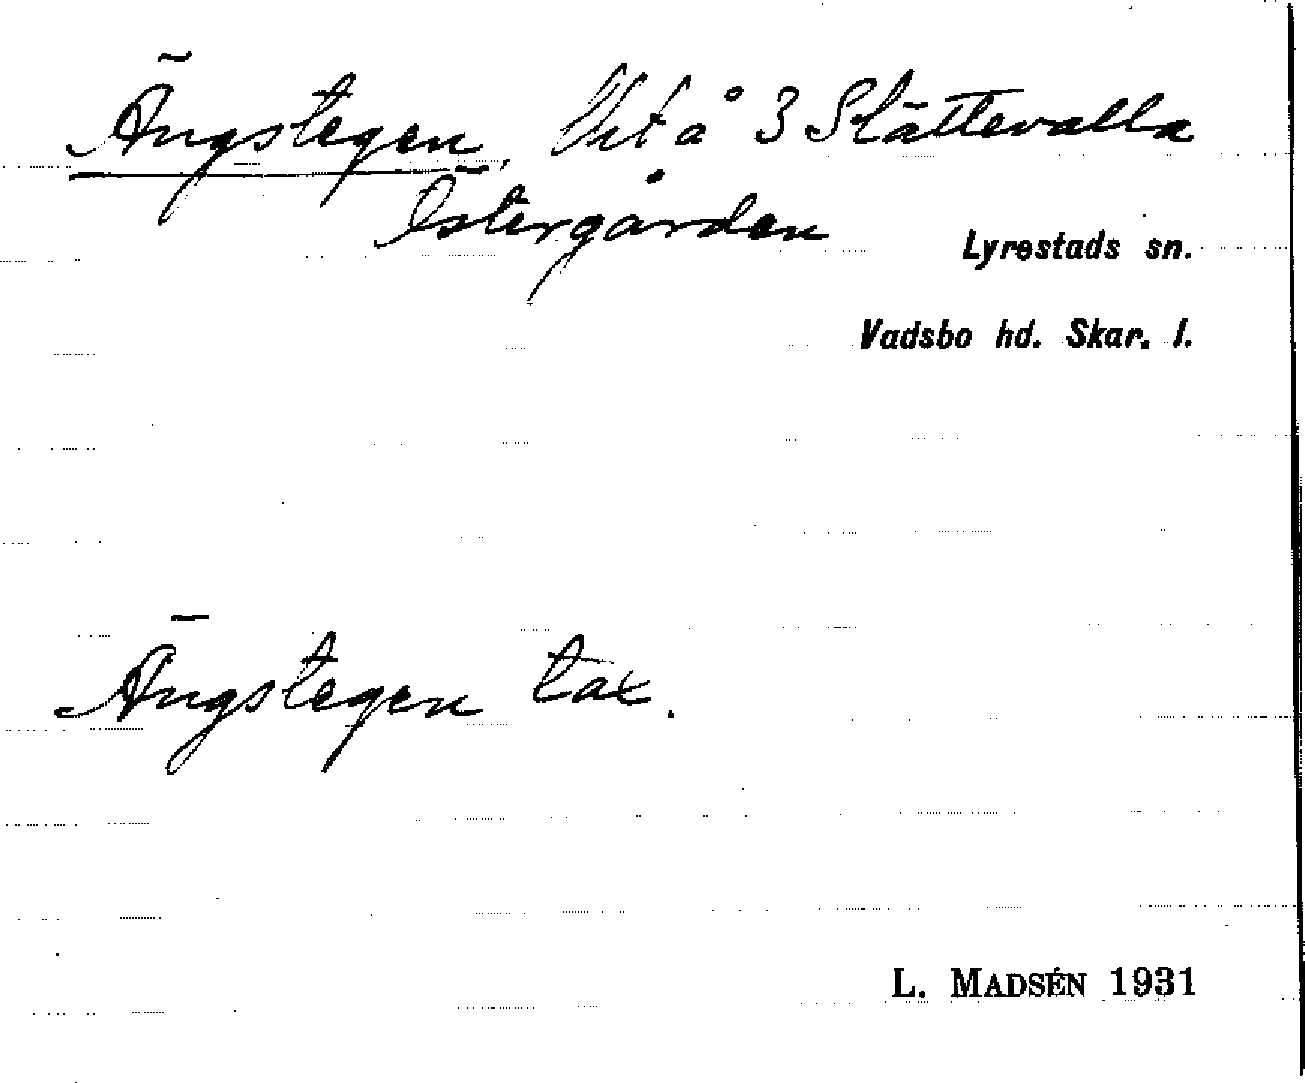 Ängstegen, Urt å 3 Slättevalla
Östergården
Lyrestads sn.
Vadsbo hd. Skar. l.
Ängstegen tax.
L. MADSÉN 1931